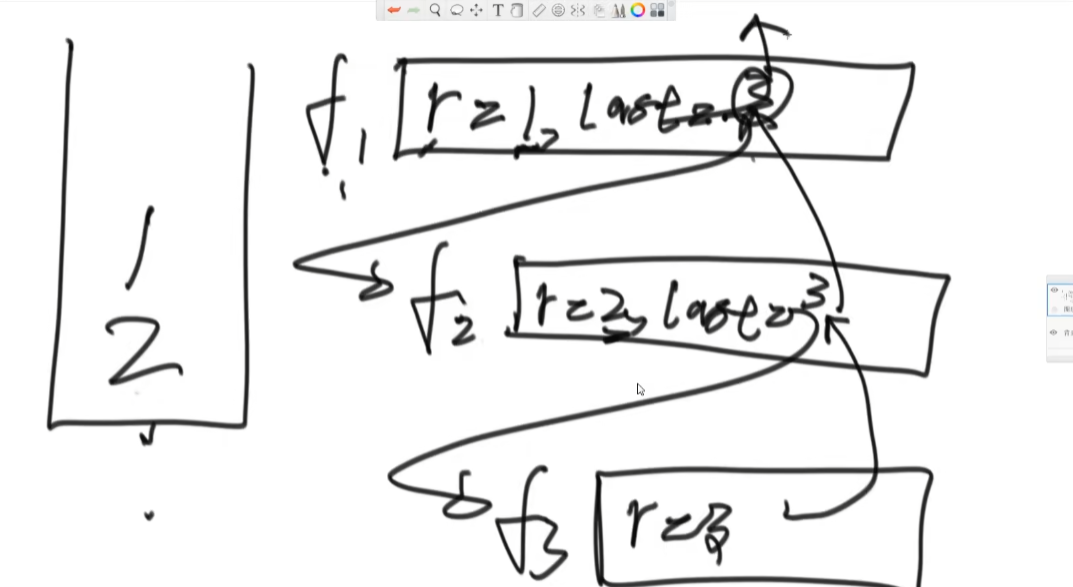 f1 r=1, last=3
f2 r=2, last=3
1
2
f3 r=3